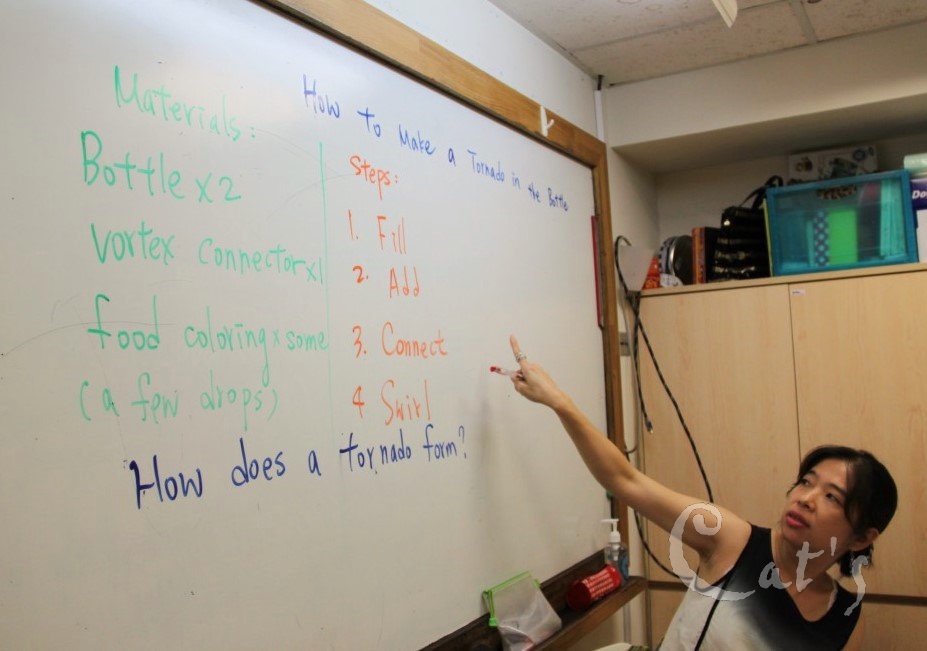 How To Make a Tornado in the Bottle
Materials:
Bottle x 2
vortex connector x 1
food coloring x some
(a few drops)
Steps:
1. Fill
2. Add
3. Connect
4 Swirl
How does a tornado form?
Cat's